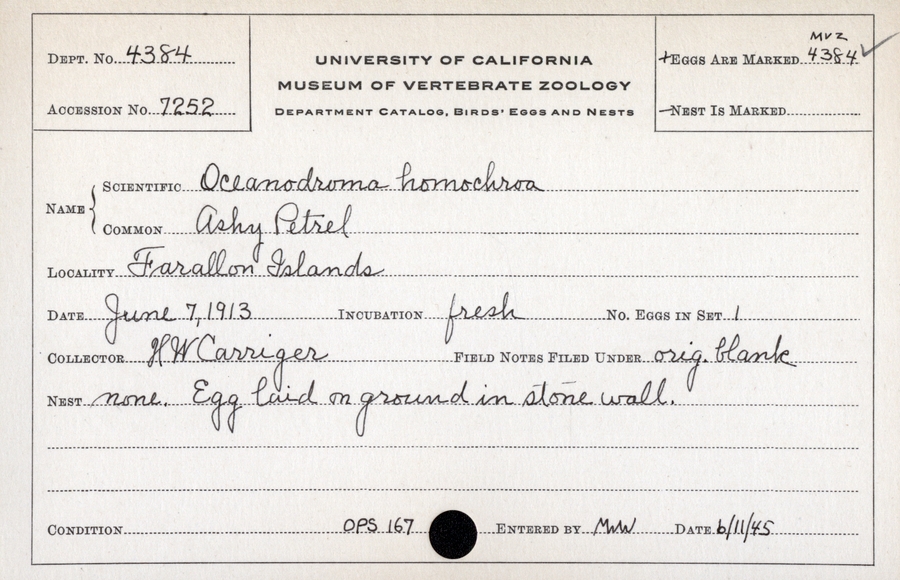 Dept. No. 4384
Accession No. 7252
UNIVERSITY OF CALIFORNIA
MUSEUM OF VERTEBRATE ZOOLOGY
Department Catalog, Birds' Eggs and Nests
MVZ
+Eggs Are Marked 4384 ✓
-Nest Is Marked
Name { Scientific Oceanodroma homochroa
Common Ashy Petrel
Locality Farallon Islands
Date June 7, 1913 Incubation fresh No. Eggs in Set 1
Collector H W Carriger Field Notes Filed Under orig. blank
Nest none. Egg laid on ground in stone wall.
Condition OPS 167 Entered by MWW Date 6/11/45